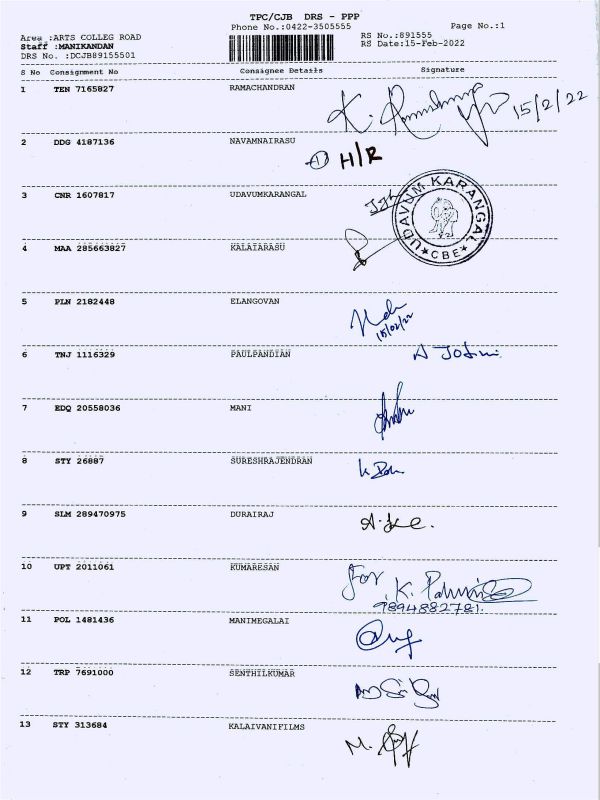 TPC/CJB DRS - PPP
Phone No.:0422-3505555
Page No.:1
Area :ARTS COLLEG ROAD
RS No.:891555
Staff :MANIKANDAN
RS Date:15-Feb-2022
DRS No. :DCJB89155501
S No Consignment No Consignee Details Signature
1 TEN 7165827 RAMACHANDRAN
K. 15/2/22
2 DDG 4187136 NAVAMNAIRASU
H/R
3 CNR 1607817 UDAVUMKARANGAL
UDAVUM KARANGAL
★ CBE ★
4 MAA 285663827 KALAIARASU
5 PLN 2182448 ELANGOVAN
15/02/22
6 TNJ 1116329 PAULPANDIAN
7 EDQ 20558036 MANI
8 STY 26887 SURESHRAJENDRAN
9 SLM 289470975 DURAIRAJ
10 UPT 2011061 KUMARESAN
For K.
9894882781.
11 POL 1481436 MANIMEGALAI
12 TRP 7691000 SENTHILKUMAR
13 STY 313684 KALAIVANIFILMS
M.